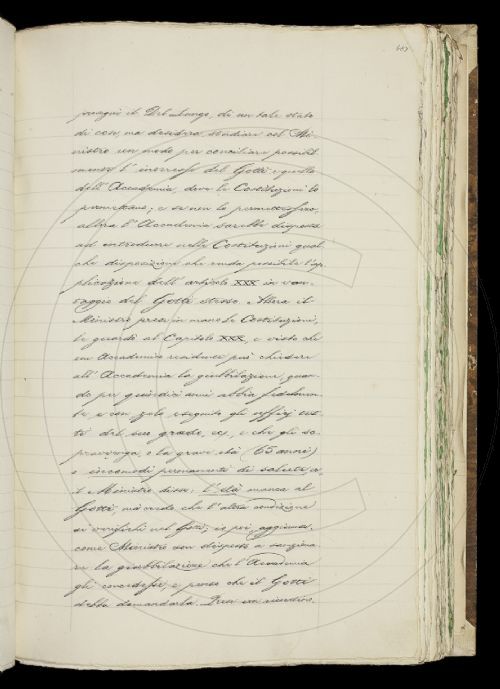 proseguì il Del Lungo, di un tale stato
di cose, ma desidera studiare col Mi-
nistro un modo per conciliare possibil-
mente l'interesse del Gotti e quello
dell'Accademia, dove le Costituzioni lo
permettano; e se non lo permettessero,
allora l'Accademia sarebbe disposta
ad introdurre nelle Costituzioni qual-
che disposizione che renda possibile l'ap-
plicazione dell'articolo XXX in van-
taggio del Gotti stesso. Allora il
Ministro prese in mano le Costituzioni,
le guardò al Capitolo XXX, e visto che
un Accademico residente può chiedere
all'Accademia la giubbilazione, quan-
do per quindici anni abbia fedelmen-
te e con zelo eseguito gli uffizj tut-
ti del suo grado, ec, e che gli so-
pravvenga, o la grave età (65 anni)
o incomodi permanenti di salute, ec.
il Ministro disse: l'età manca al
Gotti, ma credo che l'altra condizione
si riscontri nel Gotti; io poi, aggiunse,
come Ministro son disposto a sanziona-
re la giubbilazione che l'Accademia
gli concedesse, e penso che il Gotti
debba domandarla. Presi un ricordino